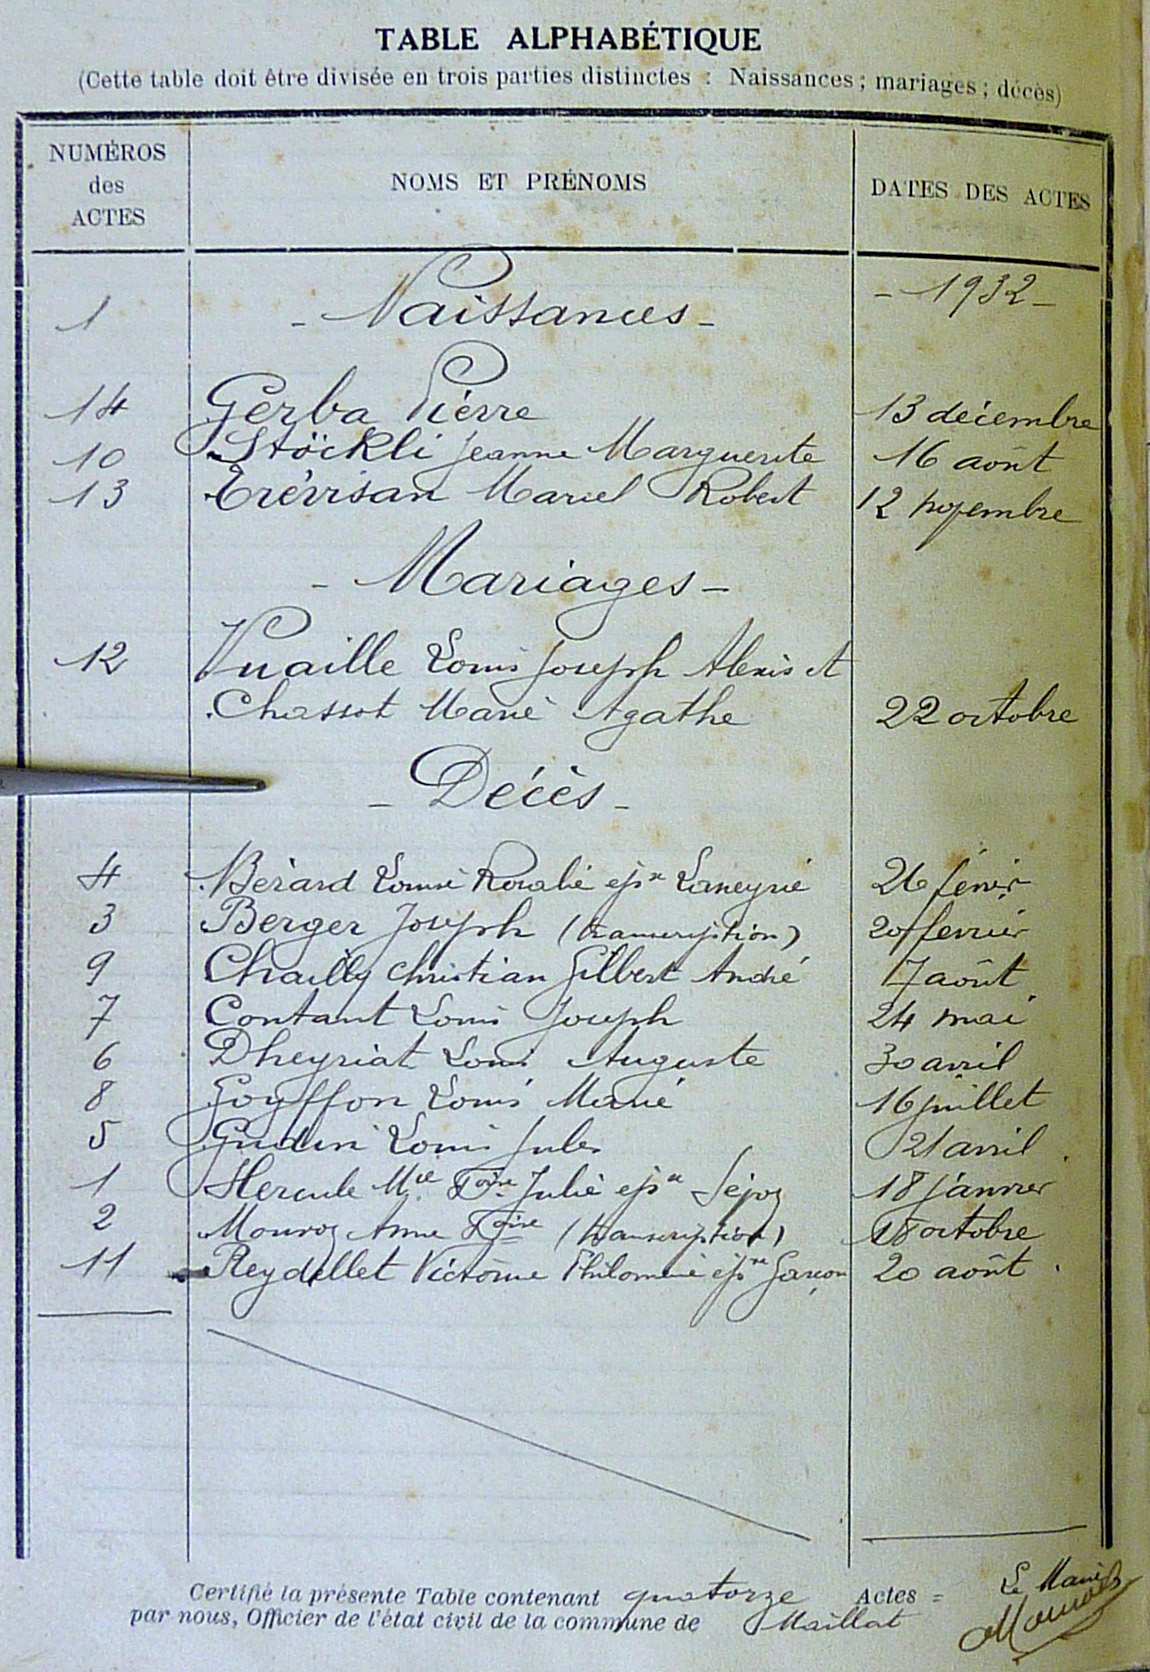 TABLE ALPHABÉTIQUE
(Cette table doit être divisée en trois parties distinctes : Naissances ; mariages ; décès)
NUMÉROS des ACTES NOMS ET PRÉNOMS DATES DES ACTES
1 - Naissances - - 1932 -
14 Gerba Pierre 13 décembre
10 Stöckli Jeanne Marguerite 16 août
13 Trévisan Marcel Robert 12 novembre
- Mariages -
12 Vuaille Louis Joseph Alexis et
Chassot Marie Agathe 22 octobre
- Décès -
4 Bérard Louise Rosalie epse Laneyrie 26 février
3 Berger Joseph (transcription) 20 février
9 Chailly Christian Gilbert André 7 août
7 Contant Louis Joseph 24 mai
6 Dheyriat Louis Auguste 30 avril
8 Goyffon Louis Marie 16 juillet
5 Louis Jules 21 avril
1 Hercule Julie epse 18 janvier
2 Anne (transcription) octobre
11 Reydellet Victorine Philomène epse Garçon 20 août
Certifié la présente Table contenant quatorze Actes = Le Maire
par nous, Officier de l'état civil de la commune de Maillat